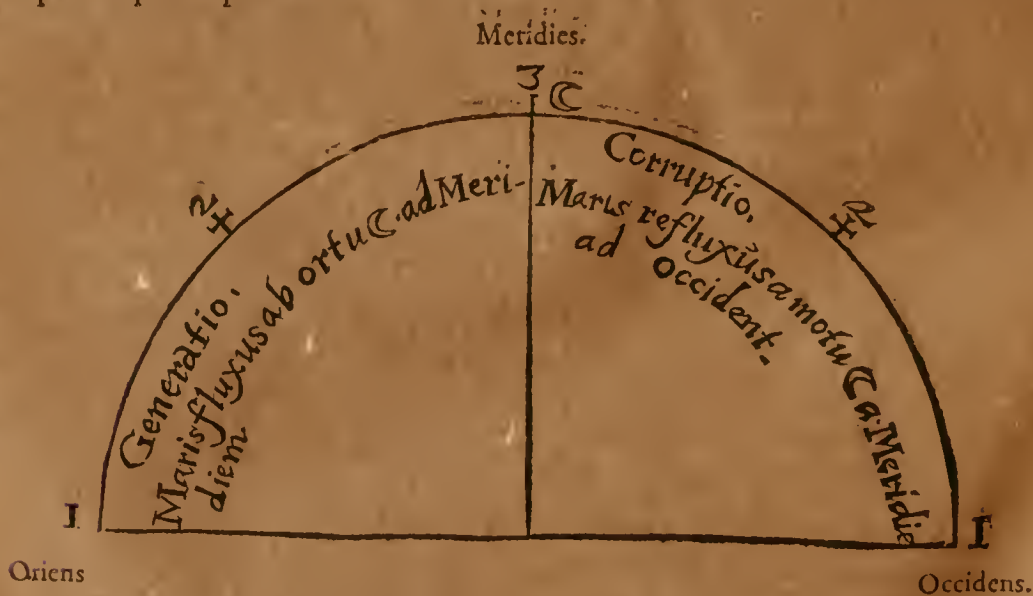 Meridies.
3 ☾
2
2
Generatio.
Maris fluxus ab ortu ☾. ad Meri-
diem
Corruptio.
Maris refluxus a motu ☾ a Meridie
ad Occident-
I
I
Oriens
Occidens.